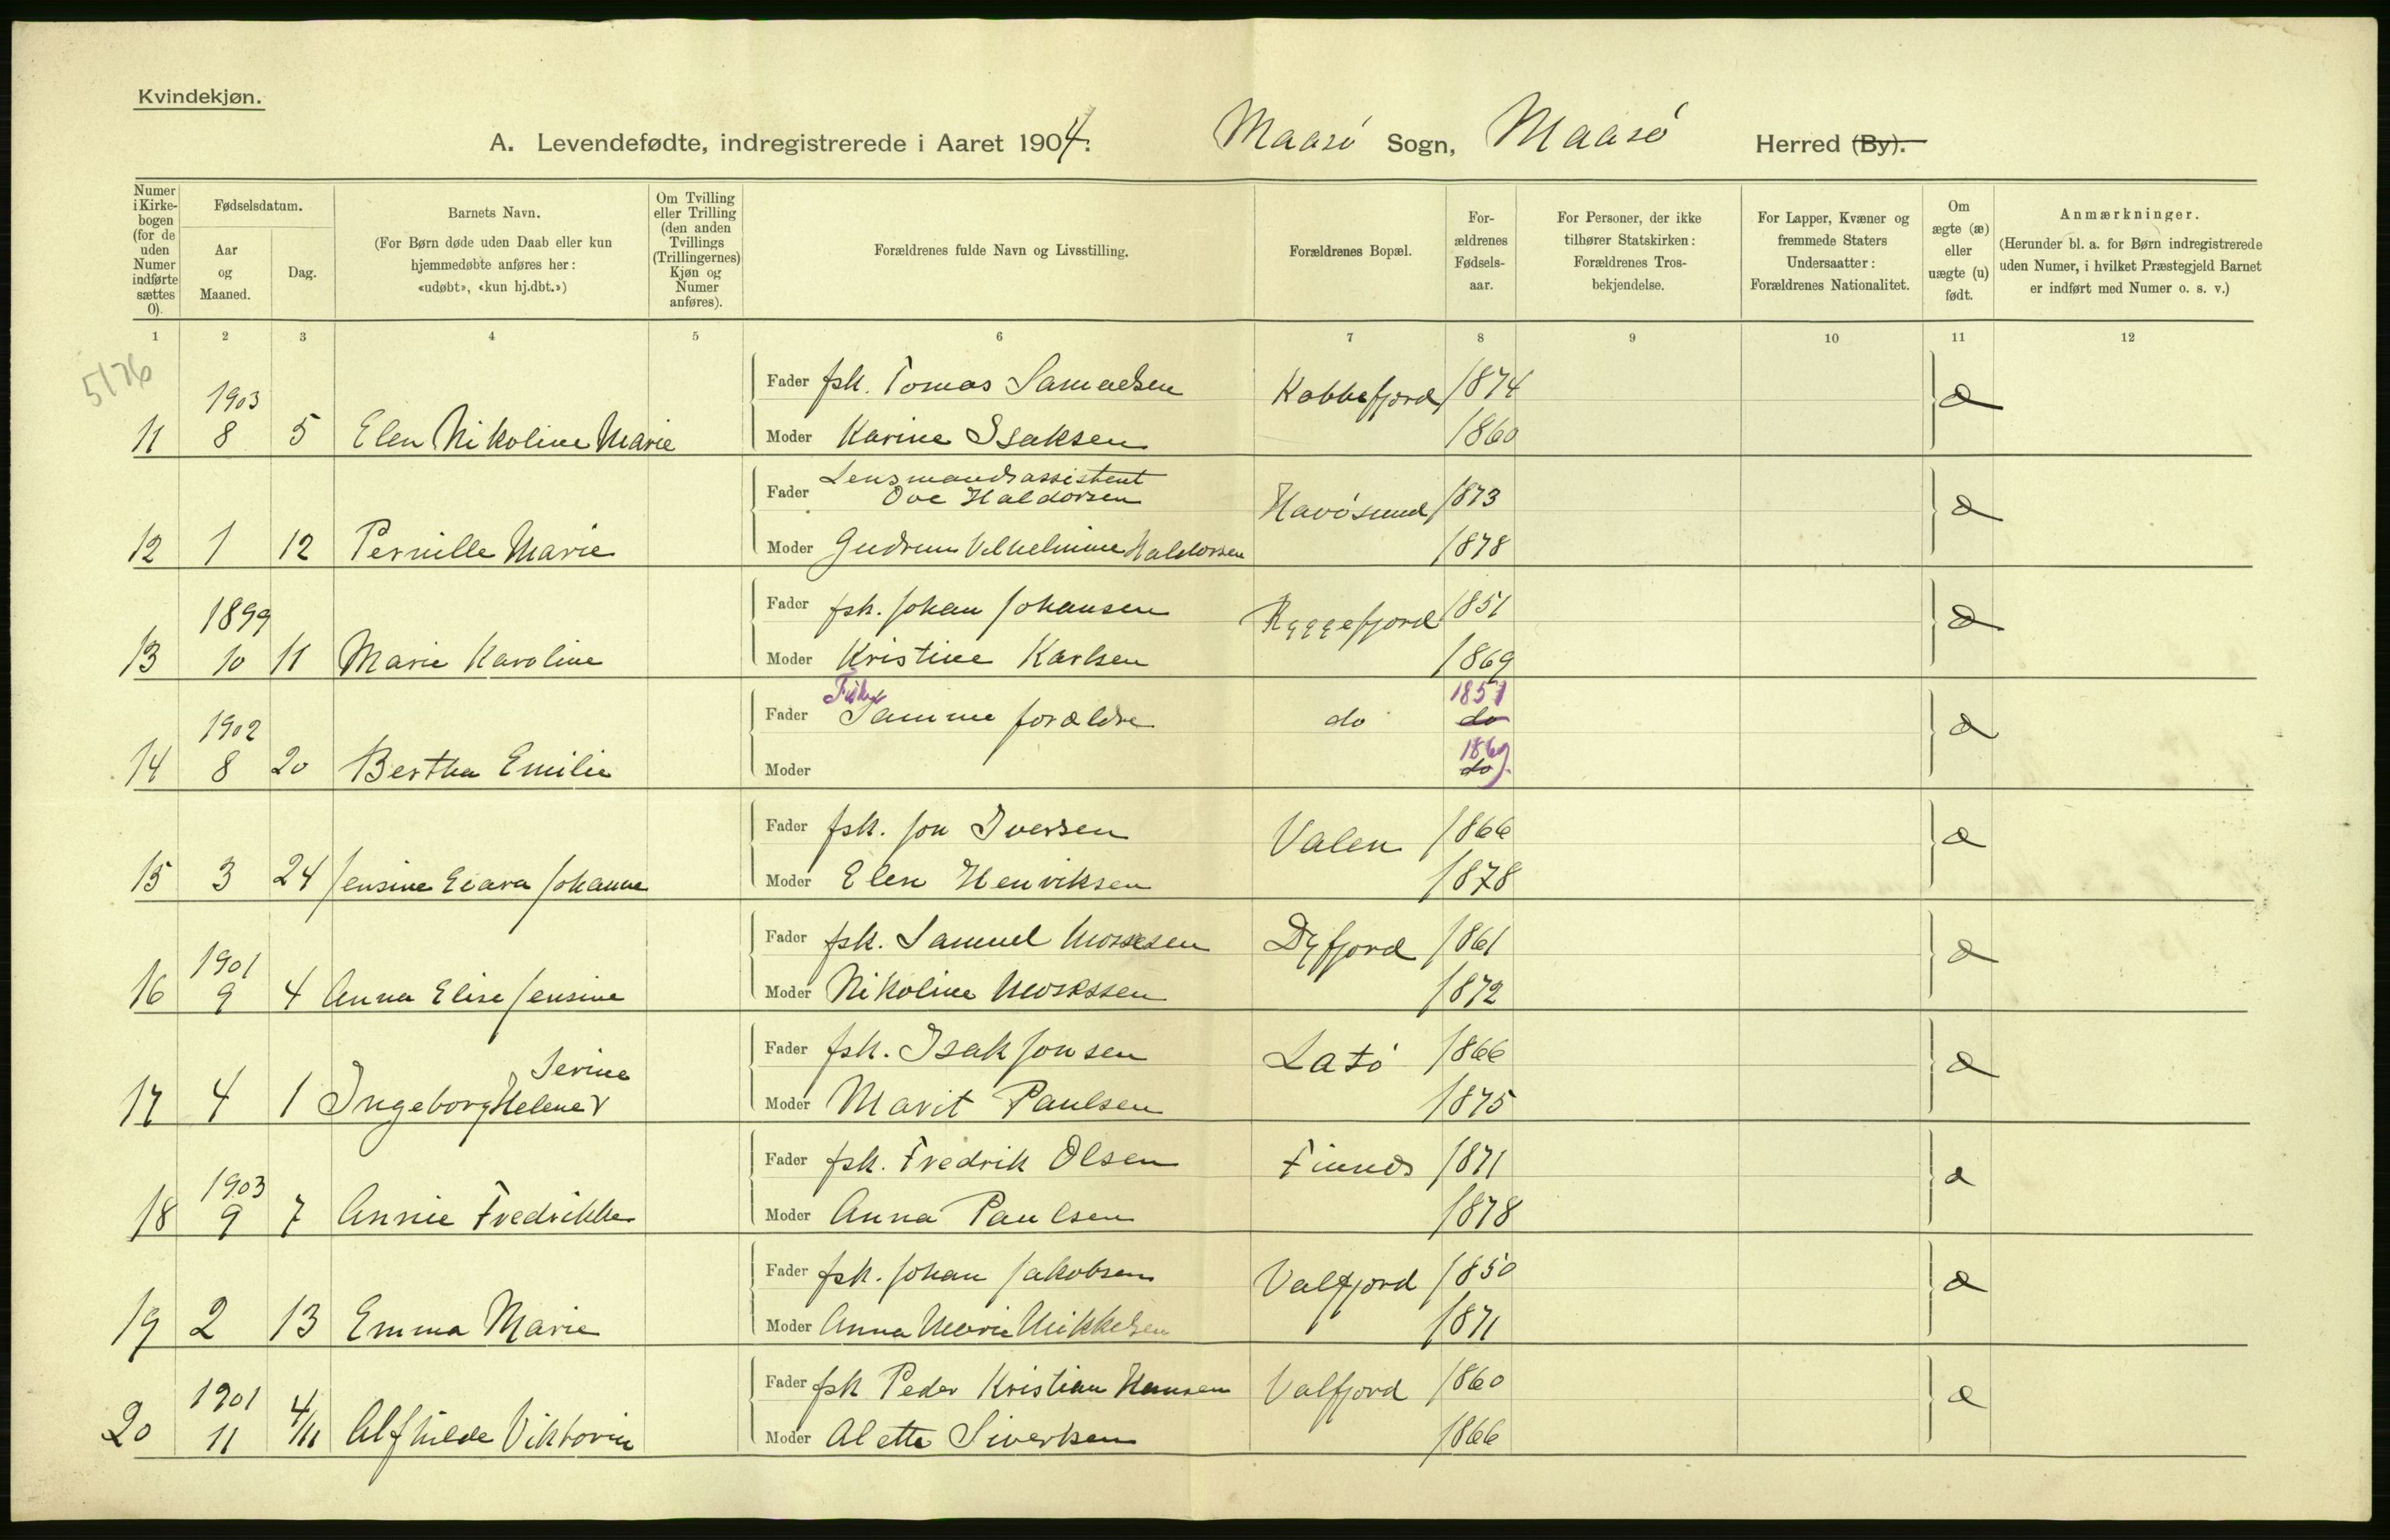 Kvindekjøn.
A. Levendefødte, indregistrerede i Aaret 1904. Maasø Sogn, Maasø Herred (By).
Numer i Kirke-bogen (for de uden Numer indførte sættes 0).
Fødselsdatum.
Aar og Maaned.
Dag.
Barnets Navn.
(For Børn døde uden Daab eller kun hjemmedøbte anføres her: «udøbt», «kun hj.dbt.»)
Om Tvilling eller Trilling (den anden Tvillings (Trillingernes) Kjøn og Numer anføres).
Forældrenes fulde Navn og Livsstilling.
Forældrenes Bopæl.
For-ældrenes Fødsels-aar.
For Personer, der ikke tilhører Statskirken: Forældrenes Tros-bekjendelse.
For Lapper, Kvæner og fremmede Staters Undersaatter: Forældrenes Nationalitet.
Om ægte (æ) eller uægte (u) født.
Anmærkninger.
(Herunder bl. a. for Børn indregistrerede uden Numer, i hvilket Præstegjeld Barnet er indført med Numer o. s. v.)
1 2 3 4 5 6 7 8 9 10 11 12
5176
Fader fsk. Tomas Samuelsen Kobbefjord 1874 æ
1903
11 8 5 Elen Nikoline Marie Moder Karine Isaksen 1860
Lensmandsassistent
Fader Ove Haldorsen Havøsund 1873 æ
12 1 12 Pernille Marie Moder Gudrun Vilhelmine Haldorsen 1878
Fader fsk. Johan Johansen Ryggefjord 1851 æ
1899
13 10 11 Marie Karoline Moder Kristine Karlsen 1869
Fisker 1851
Fader Samme forældre do do æ
1902 1869
14 8 20 Bertha Emilie Moder do
Fader fsk. Jon Iversen Valen 1866 æ
15 3 24 Jensine Johanne Moder Elen Henriksen 1878
Fader fsk. Samuel Mosesen Dyfjord 1861 æ
1901
16 9 4 Anna Elise Jensine Moder Nikoline Mosessen 1872
Fader fsk. Isak Jonsen Latø 1866 æ
Serine
17 4 1 Ingeborg Helene Moder Marit Paulsen 1875
Fader fsk. Fredrik Olsen Finnes 1871 æ
1903
18 9 7 Annie Fredrikke Moder Anna Paulsen 1878
Fader fsk. Johan Jakobsen Valfjord 1850 æ
19 2 13 Emma Marie Moder Anna Marie Mikkelsen 1871
Fader fsk Peder Kristian Hansen Valfjord 1860 æ
1901
20 11 4/11 Alfhilde Viktorie Moder Alette Sivertsen 1866